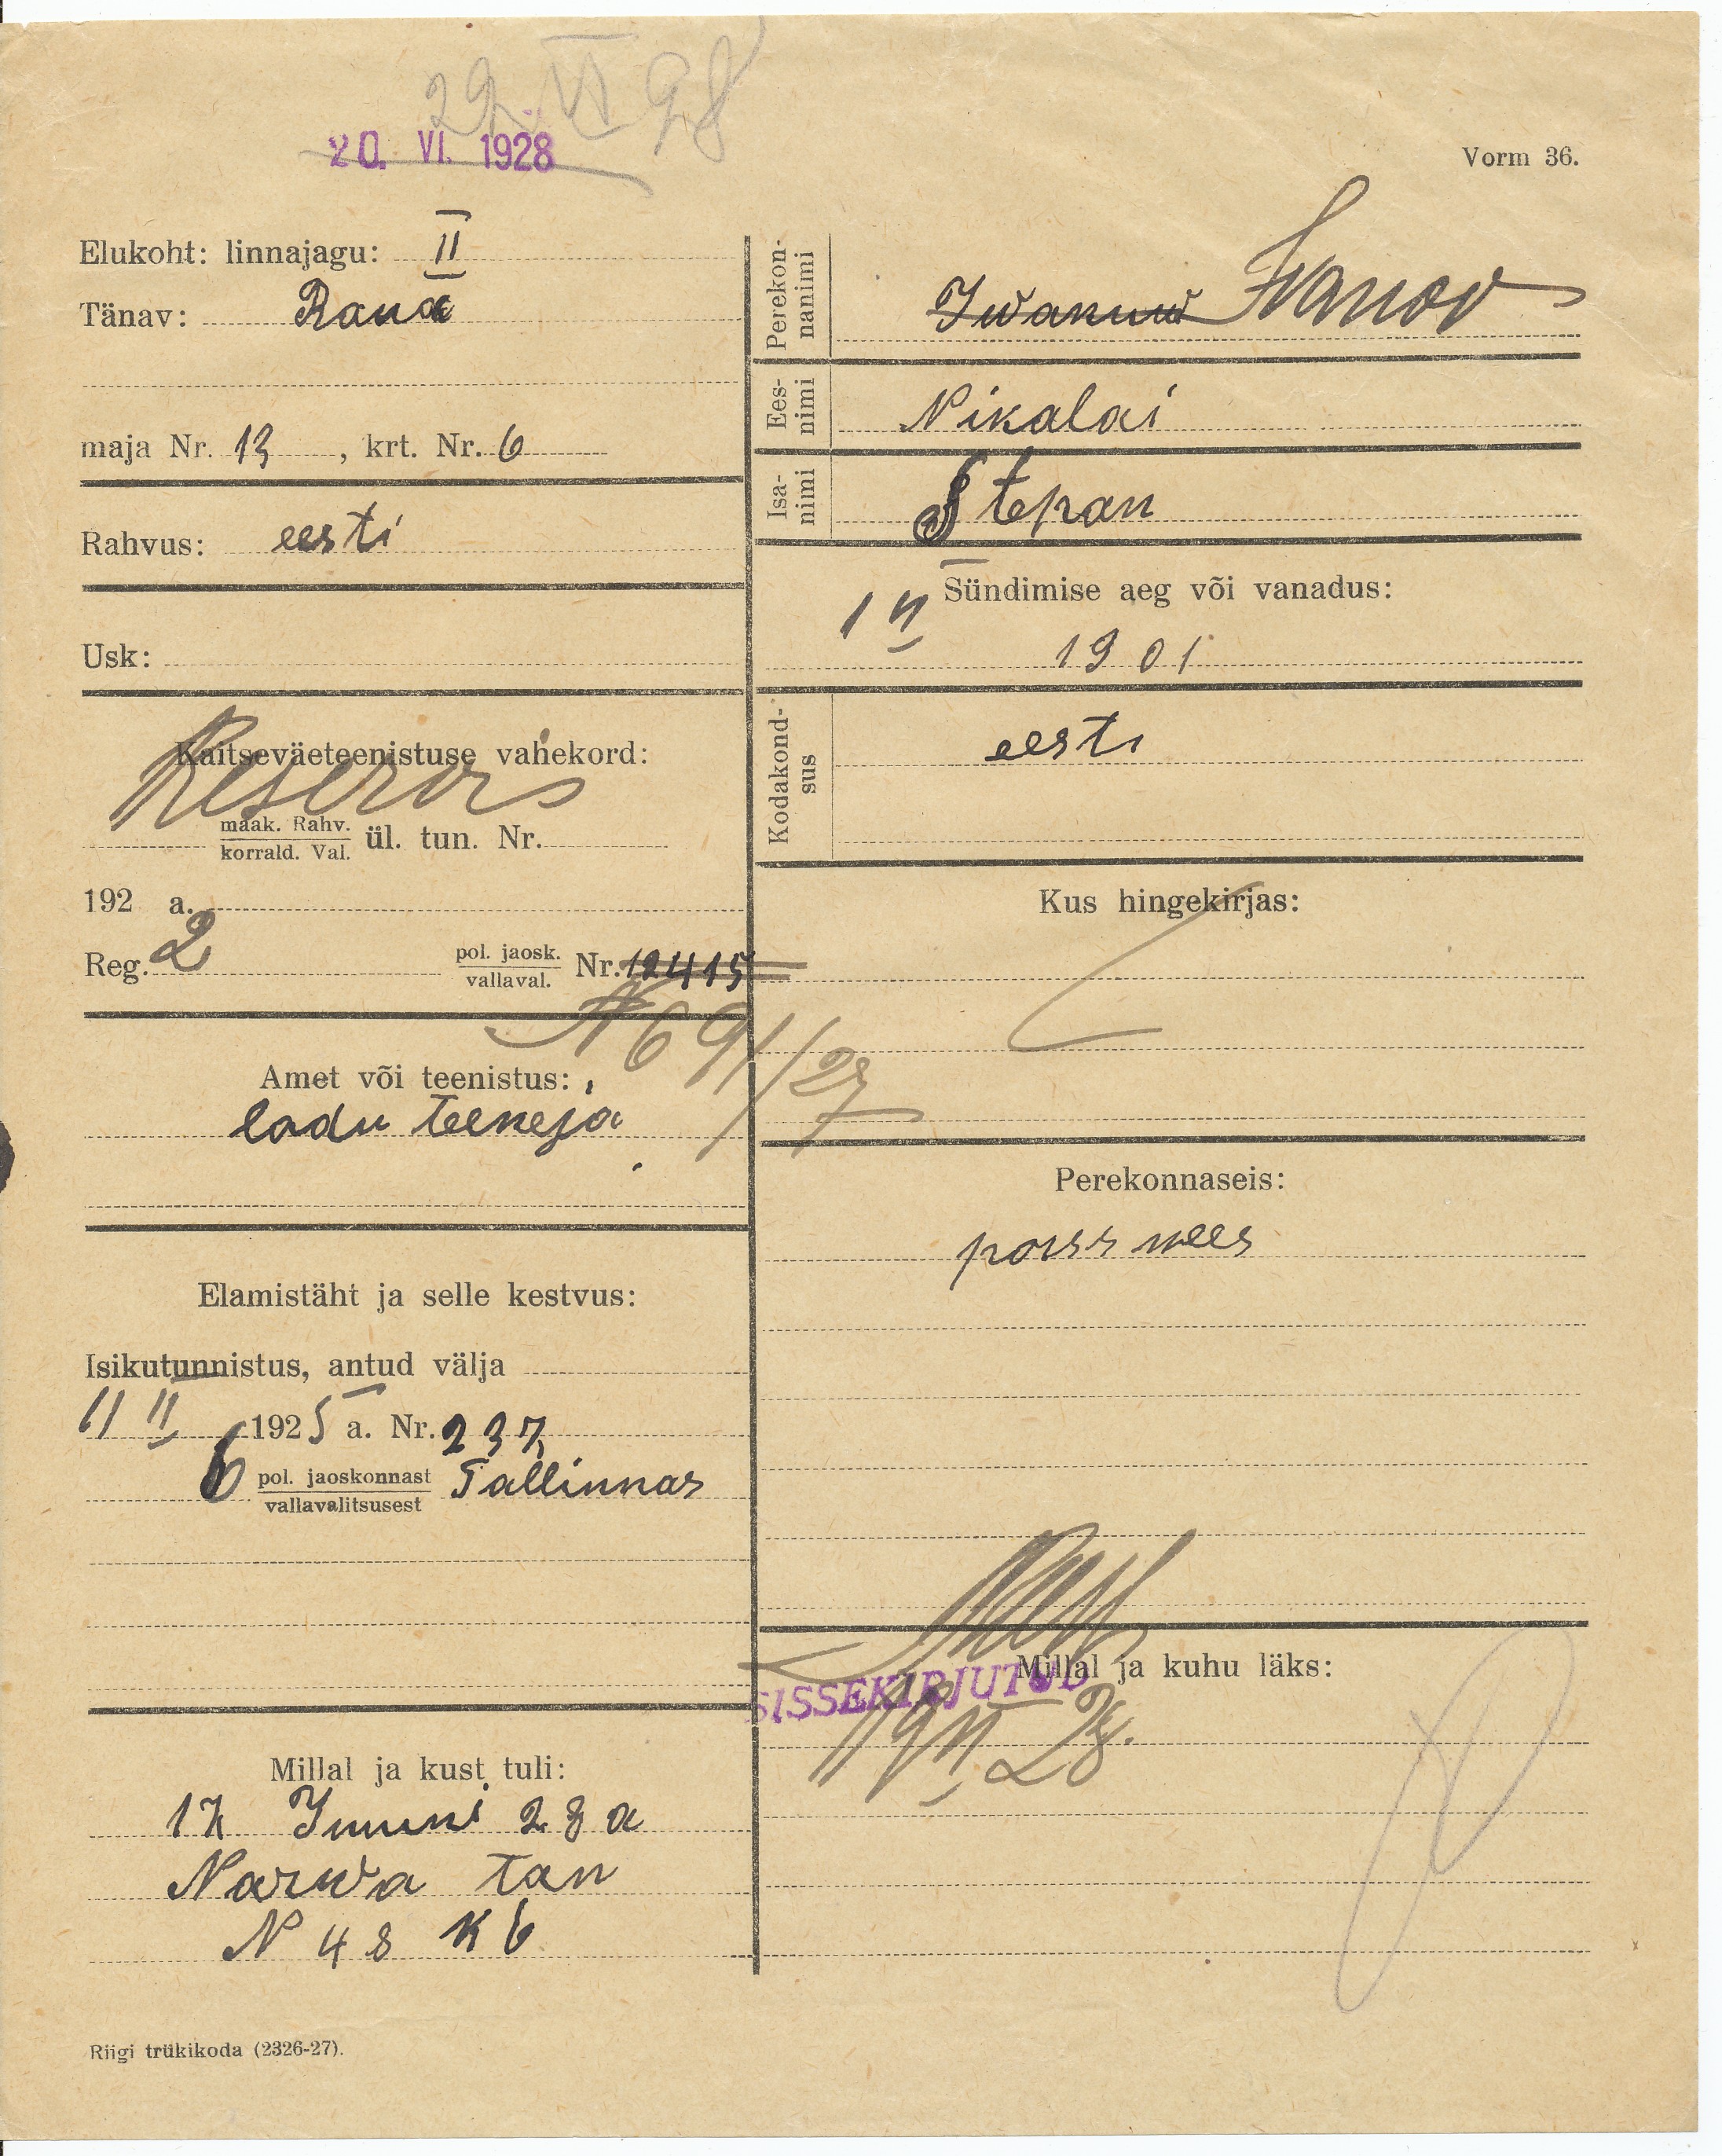 29. VI 28
20. VI. 1928
Vorm 36.
Elukoht: linnajagu: II
Tänav: Rana
maja Nr. 13, krt. Nr. 6
Rahvus: eesti
Usk:
Kaitseväeteenistuse vahekord:
Reservis
maak. Rahv.
korrald. Val. ül. tun. Nr.
192 a.
Reg. 2 pol. jaosk.
vallaval. Nr. 12415
N 691/27
Amet või teenistus:
ladu teeneja
Elamistäht ja selle kestvus:
Isikutunnistus, antud välja
11 II 1925 a. Nr. 237
6 pol. jaoskonnast
vallavalitsusest Tallinnas
Millal ja kust tuli:
17 Juuni 28 a
Narwa tan
N 48 K 6
Riigi trükikoda (2326-27).
Perekon-
nanimi Iwanow Ivanov
Ees-
nimi Nikalai
Isa-
nimi Stepan
Sündimise aeg või vanadus:
1901
Kodakond-
sus eesti
Kus hingekirjas:
Perekonnaseis:
poissmees
Millal ja kuhu läks:
SISSEKIRJUTUD